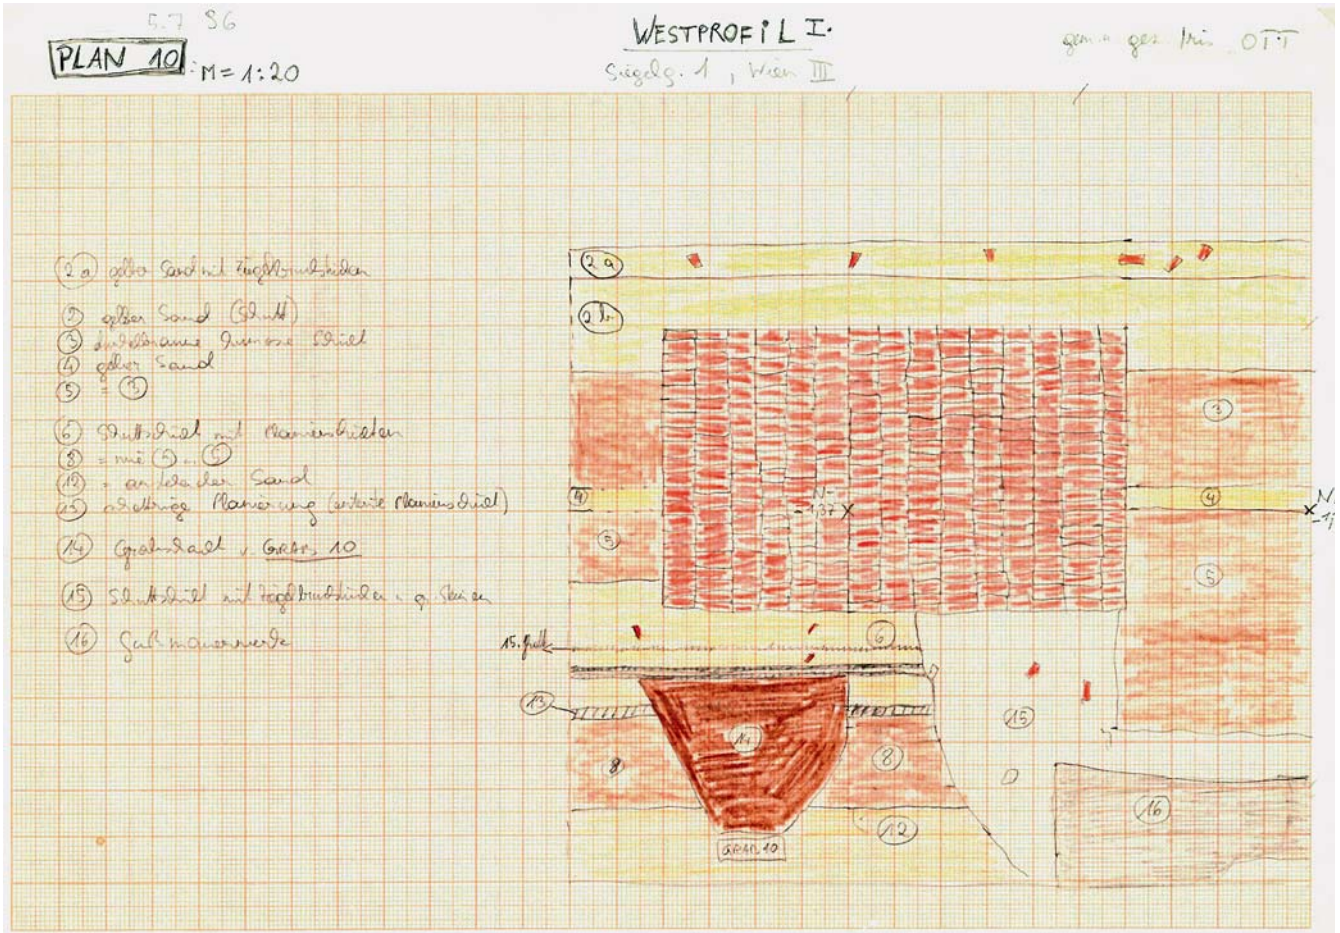 5.7 96
PLAN 10
M = 1:20
WESTPROFIL I.
Siegelg. 1, Wien III
gez. Iris OTT
2a gelber Sand mit Ziegelbruchstücken
2 gelber Sand (Schutt)
3 dunkelbraune humose Schicht
4 gelber Sand
5 = 3
6 Schuttschicht mit Planierschichten
8 = wie 5
12 = Sand
13 Planierung
14 Grabschacht v. GRAB 10
15 Schuttschicht mit Ziegelbruchstücken u. gr. Steinen
16 Gußmauerwerk
2a
2b
3
4
4
N-
-1,37 X
5
5
6
15.
13
14
15
8
8
16
12
GRAB 10